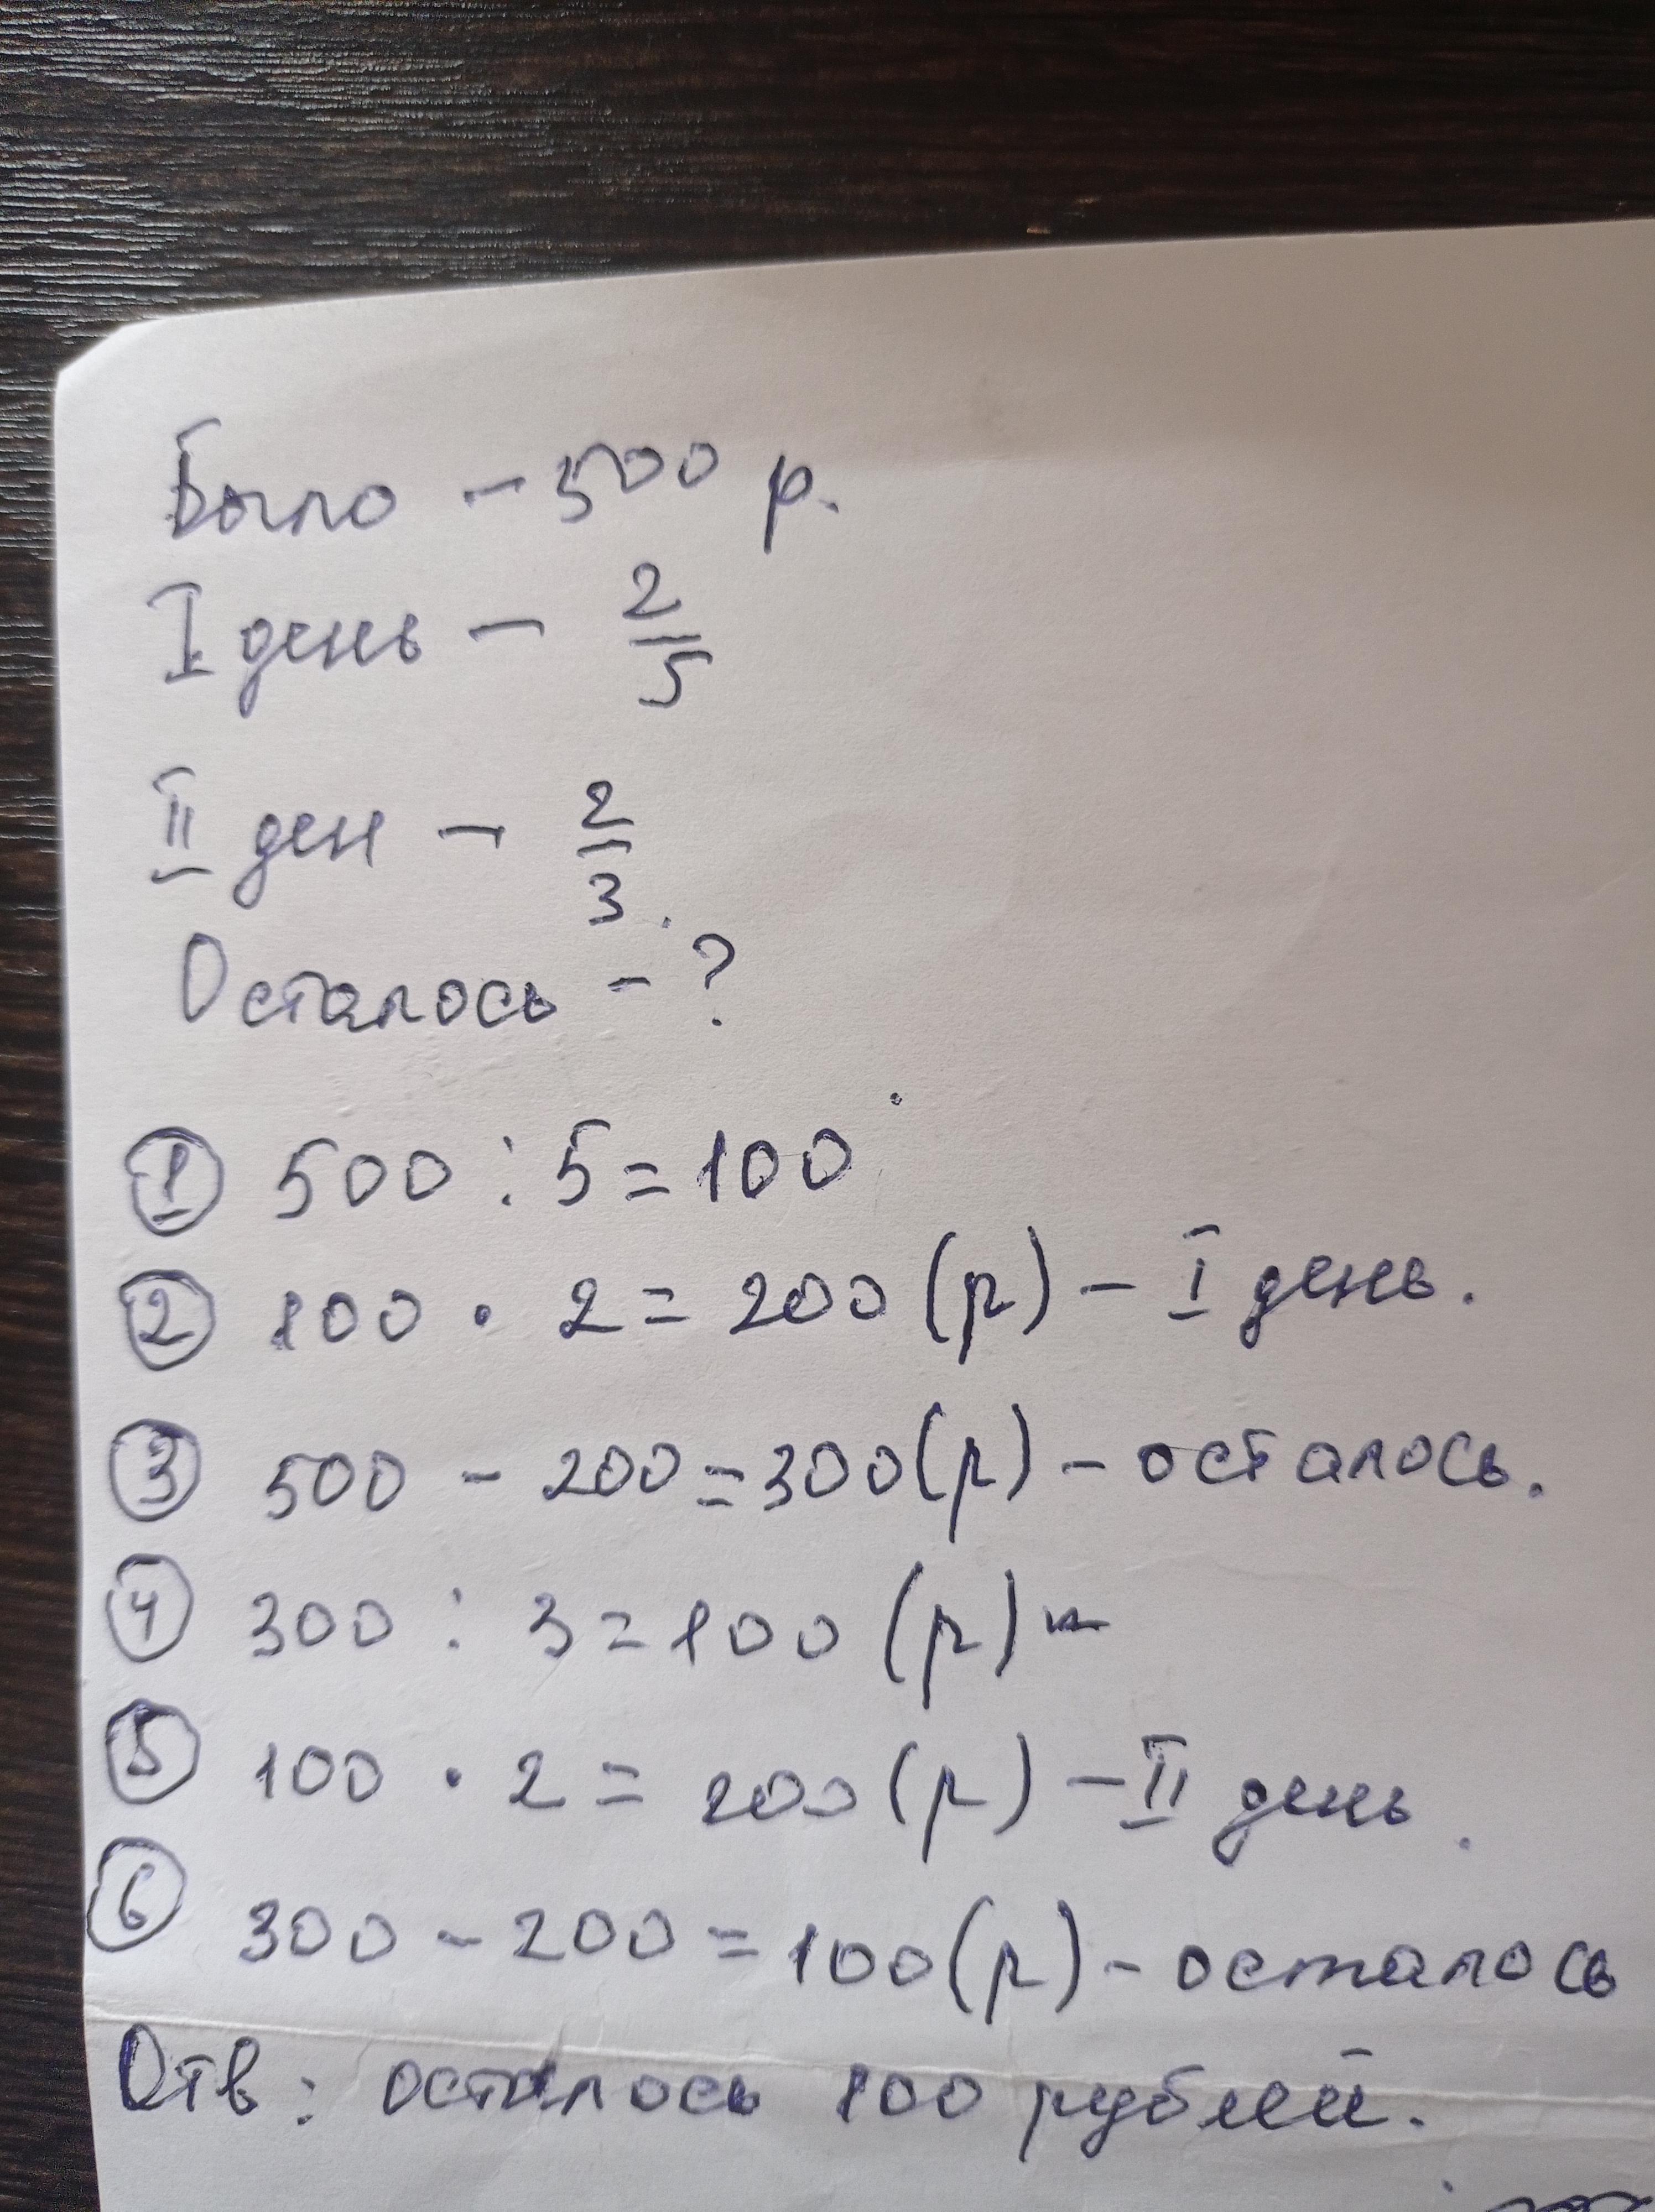 Было - 500 р.
I день - 2/5
II ден - 2/3.
Осталось - ?
① 500 : 5 = 100
② 100 · 2 = 200 (р) - I день.
③ 500 - 200 = 300 (р) - осталось.
④ 300 : 3 = 100 (р) -
⑤ 100 · 2 = 200 (р) - II день.
⑥ 300 - 200 = 100 (р) - осталось
Отв: осталось 100 рублей.